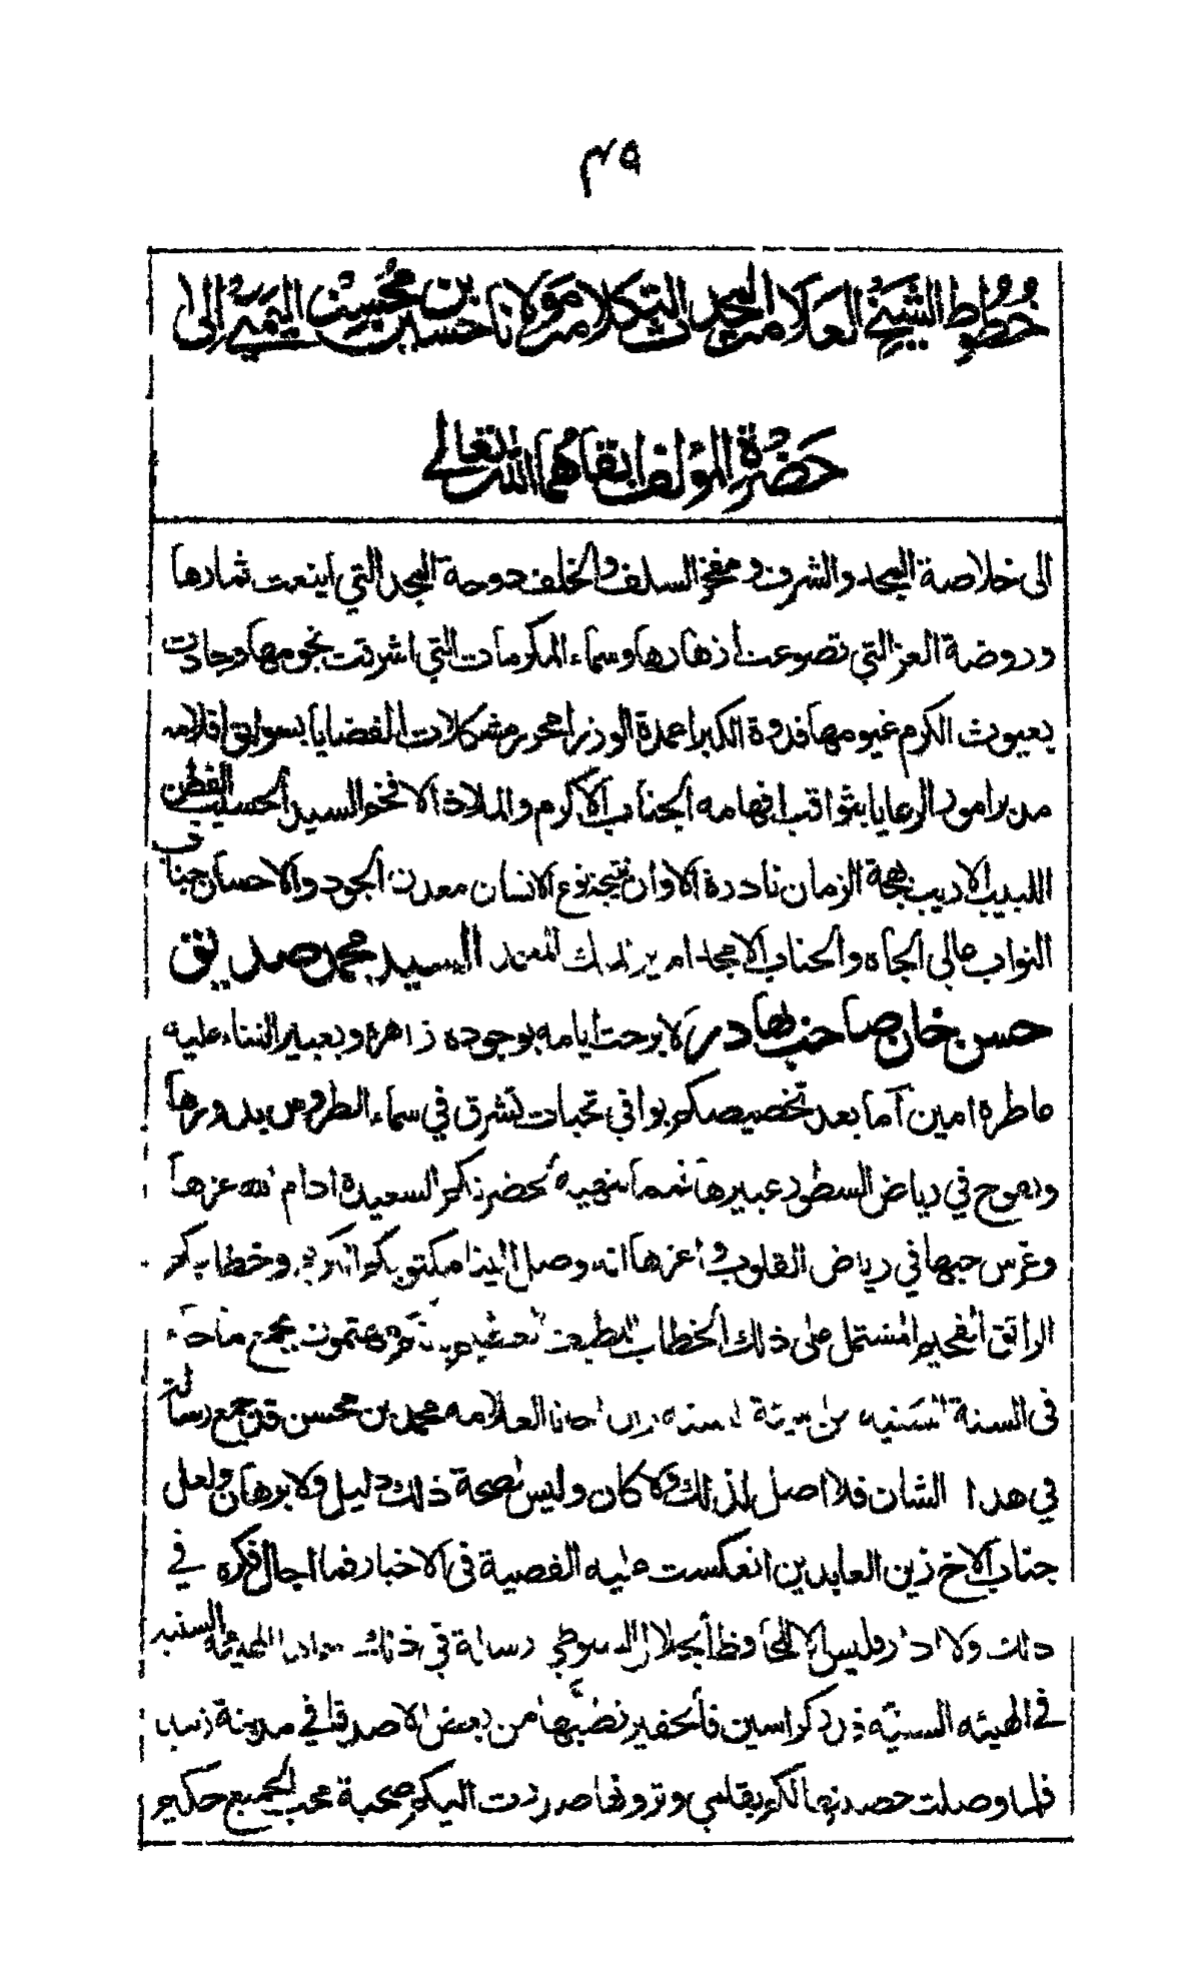 ٤٩
خطوط الشيخ العلامة المحدث التكلامة مولانا حسين بن محسن اليمني إلى
حضرة المؤلف ابقاهما الله تعالى
الى خلاصة المجد والشرف ومفخر السلف والخلف دوحة المجد التي اينعت ثمارها
وروضة العز التي تضوعت أزهارها وسماء المكرمات التي اشرقت نجومها وجادت
بغيوث الكرم غيومها قدوة الكبرا عمدة الوزرا محرر مشكلات القضايا بسوابق اقلامه
مدبر امور الرعايا بثواقب افهامه الجناب الاكرم والملاذ الافخر السيد الحسيب الفطن
اللبيب الاديب بهجة الزمان نادرة الاوان نتيجة نوع الانسان معدن الجود والاحسان جناب
النواب عالي الجاه والجناب الامجد امير الملك المعتمد السيد محمد صديق
حسن خان صاحب بهادر لا برحت ايامه بوجوده زاهرة وبعبير الثناء عليه
عاطرة امين آما بعد تخصيصكم بوافي تحيات تشرق في سماء الطروس بدورها
وتفوح في رياض السطور عبيرها ننهيه لحضرتكم السعيدة ادام الله عزها
وغرس حبها في رياض القلوب و اعزها انه وصل الينا مكتوبكم الكريم وخطابكم
الرائق الفخيم المشتمل على ذلك الخطاب اللطيف بجمع ما جاء
في السنة السنيه من اخانا العلامه محمد بن محسن قد جمع رسالة
في هذا الشان فلا اصل لذلك ولا كان وليس لصحة ذلك دليل ولا برهان ولعل
جناب الاخ زين العابدين انعكست عليه القضية في الاخبار فما اجال فكره في
ذلك ولا ادار وليس الا للحافظ الجلال السيوطي رسالة في ذلك الهيئة السنيه
في الهيئه السنيه في كراسين فالحقير من بعض الاصدقا في مدينة زبيد
فلما وصلت حصلتها لكم بقلمي صدرت اليكم صحبة محب الجميع حكيم